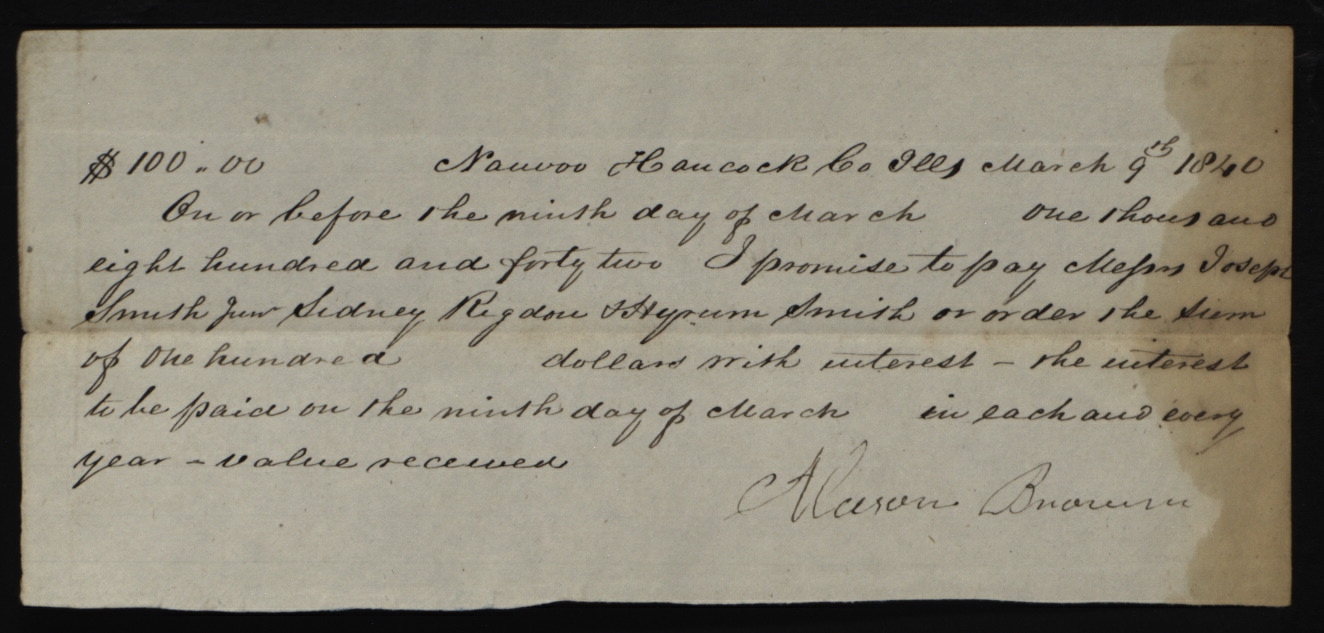 $ 100.00 Nauvoo Hancock Co Ills March 9th 1840
On or before the ninth day of March one thousand
eight hundred and forty two I promise to pay Messrs Joseph
Smith Junr Sidney Rigdon & Hyrum Smith or order the sum
of One hundred dollars with interest - the interest
to be paid on the ninth day of March in each and every
year - value received
Alason Brown